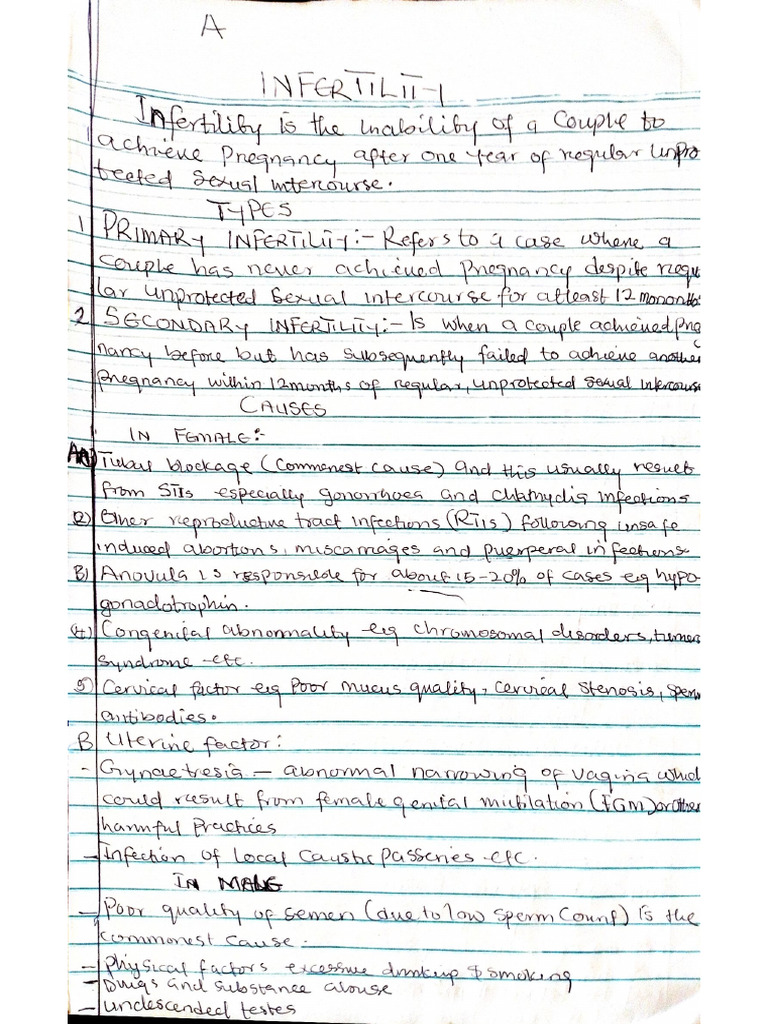 A
INFERTILITY
Infertility is the inability of a Couple to
achieve Pregnancy after one year of regular unpro
tected sexual intercourse.
TYPES
1 PRIMARY INFERTILITY:- Refers to a case where a
couple has never achieved pregnancy despite regu
lar unprotected sexual intercourse for atleast 12 mononths
2 SECONDARY INFERTILITY:- Is when a couple achieved preg
nancy before but has subsequently failed to achieve another
pregnancy within 12 months of regular, unprotected sexual intercourse
CAUSES
IN FEMALE:-
Tubal blockage (Commonest cause) and this usually result
from STIs especially gonorrhoea and chlamydia infections
(2) Other reproductive tract infections (RTIs) following unsafe
induced abortions, miscarriages and puerperal infections
B) Anovula is responsible for about 15-20% of cases eg hypo
gonadotrophin.
(4) Congenital abnormality eg chromosomal disorders, turners
syndrome etc.
5) Cervical factor eg poor mucus quality, cervical stenosis, sperm
antibodies.
B Uterine factor:
- Gynaetresia - abnormal narrowing of vagina which
could result from female genital mutilation (FGM) or other
harmful practices
- Infection of local caustic passeries etc.
IN MALE
- Poor quality of semen (due to low sperm count) is the
commonest cause.
- Physical factors excessive drinking & smoking
- Drugs and substance abuse
- undescended testes